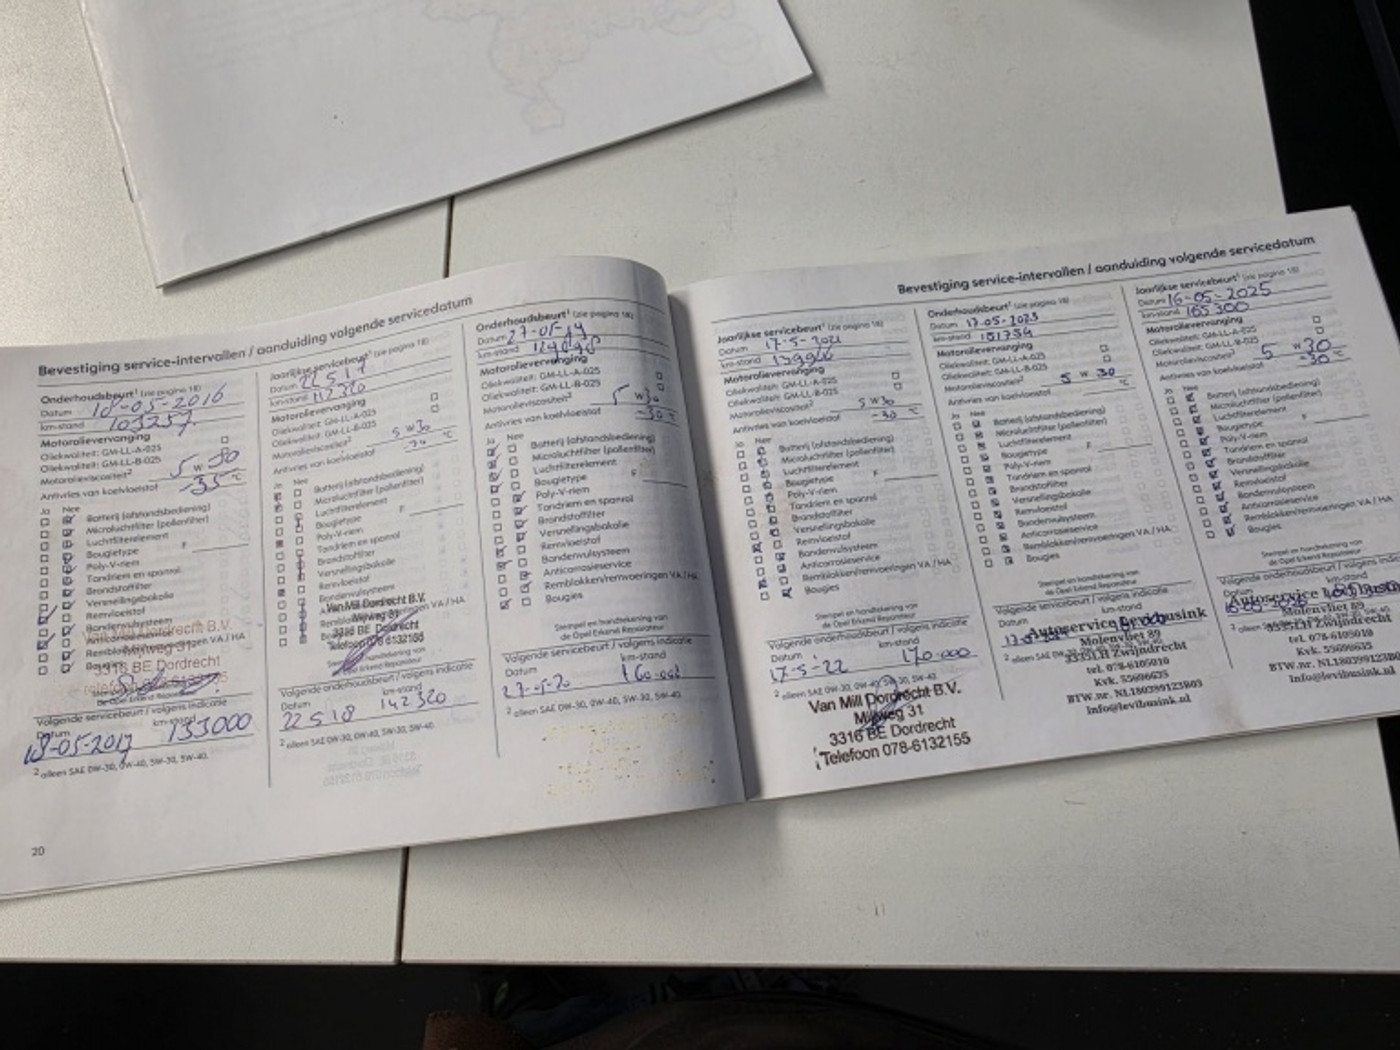 Bevestiging service-intervallen / aanduiding volgende servicedatum
Onderhoudsbeurt¹ (zie pagina 18)
Datum 18-05-2016
km-stand 103257
Motorolievervanging
Oliekwaliteit: GM-LL-A-025
Oliekwaliteit: GM-LL-B-025
Motorolieviscositeit² 5 W 30
Antivries van koelvloeistof -35 °C
Ja Nee
Batterij (afstandsbediening)
Microluchtfilter (pollenfilter)
Luchtfilterelement
Bougietype F
Poly-V-riem
Tandriem en spanrol
Brandstoffilter
Versnellingsbakolie
Remvloeistof
Bandenvulsysteem
Van Mill Dordrecht B.V.
Mijlweg 31
3316 BE Dordrecht
telefoon 078-6132155
de Opel Erkend Reparateur
Volgende servicebeurt / volgens indicatie
Datum km-stand
18-05-2017 133000
² alleen SAE 0W-30, 0W-40, 5W-30, 5W-40.
20
Jaarlijkse servicebeurt¹ (zie pagina 18)
Datum 22 5 17
km-stand 112320
Motorolievervanging
Oliekwaliteit: GM-LL-A-025
Oliekwaliteit: GM-LL-B-025
Motorolieviscositeit² 5 W 30
Antivries van koelvloeistof °C
Ja Nee
Batterij (afstandsbediening)
Microluchtfilter (pollenfilter)
Luchtfilterelement
Bougietype F
Poly-V-riem
Tandriem en spanrol
Brandstoffilter
Versnellingsbakolie
Remvloeistof
Bandenvulsysteem
Van Mill Dordrecht B.V.
Mijlweg 31
3316 BE Dordrecht
Telefoon 078-6132155
Volgende onderhoudsbeurt / volgens indicatie
Datum km-stand
22 5 18 142320
² alleen SAE 0W-30, 0W-40, 5W-30, 5W-40.
Onderhoudsbeurt¹ (zie pagina 18)
Datum
km-stand
Motorolievervanging
Oliekwaliteit: GM-LL-A-025
Oliekwaliteit: GM-LL-B-025
Motorolieviscositeit² 5 W 30
Antivries van koelvloeistof -30 °C
Ja Nee
Batterij (afstandsbediening)
Microluchtfilter (pollenfilter)
Luchtfilterelement
Bougietype F
Poly-V-riem
Tandriem en spanrol
Brandstoffilter
Versnellingsbakolie
Remvloeistof
Bandenvulsysteem
Anticorrosieservice
Remblokken/remvoeringen VA / HA
Bougies
Stempel en handtekening van
de Opel Erkend Reparateur
Volgende servicebeurt / volgens indicatie
Datum km-stand
² alleen SAE 0W-30, 0W-40, 5W-30, 5W-40.
Bevestiging service-intervallen / aanduiding volgende servicedatum
Jaarlijkse servicebeurt¹ (zie pagina 18)
Datum 17-5-2021
km-stand
Motorolievervanging
Oliekwaliteit: GM-LL-A-025
Oliekwaliteit: GM-LL-B-025
Motorolieviscositeit² 5 W 30
Antivries van koelvloeistof -30 °C
Ja Nee
Batterij (afstandsbediening)
Microluchtfilter (pollenfilter)
Luchtfilterelement
Bougietype F
Poly-V-riem
Tandriem en spanrol
Brandstoffilter
Versnellingsbakolie
Remvloeistof
Bandenvulsysteem
Anticorrosieservice
Remblokken/remvoeringen VA / HA
Bougies
Stempel en handtekening van
de Opel Erkend Reparateur
Volgende servicebeurt / volgens indicatie
Datum km-stand
17-5-22 170.000
² alleen SAE 0W-30, 0W-40, 5W-30, 5W-40.
Van Mill Dordrecht B.V.
Mijlweg 31
3316 BE Dordrecht
Telefoon 078-6132155
Onderhoudsbeurt¹ (zie pagina 18)
Datum 17-05-2023
km-stand 151754
Motorolievervanging
Oliekwaliteit: GM-LL-A-025
Oliekwaliteit: GM-LL-B-025
Motorolieviscositeit² 5 W 30
Antivries van koelvloeistof °C
Ja Nee
Batterij (afstandsbediening)
Microluchtfilter (pollenfilter)
Luchtfilterelement
Bougietype F
Poly-V-riem
Tandriem en spanrol
Brandstoffilter
Versnellingsbakolie
Remvloeistof
Bandenvulsysteem
Anticorrosieservice
Remblokken/remvoeringen VA / HA
Bougies
Stempel en handtekening van
de Opel Erkend Reparateur
Volgende servicebeurt / volgens indicatie
Datum km-stand
Autoservice Levi Busink
Molenvliet 89
3335LH Zwijndrecht
tel. 078-6105010
Kvk. 55696635
BTW.nr. NL180399123B03
Info@levibusink.nl
Jaarlijkse servicebeurt¹ (zie pagina 18)
Datum 16-05-2025
km-stand 165300
Motorolievervanging
Oliekwaliteit: GM-LL-A-025
Oliekwaliteit: GM-LL-B-025
Motorolieviscositeit² 5 W 30
Antivries van koelvloeistof -30 °C
Ja Nee
Batterij (afstandsbediening)
Microluchtfilter (pollenfilter)
Luchtfilterelement
Bougietype
Poly-V-riem
Tandriem en spanrol
Brandstoffilter
Versnellingsbakolie
Remvloeistof
Bandenvulsysteem
Anticorrosieservice
Remblokken/remvoeringen VA / HA
Bougies
Stempel en handtekening van
de Opel Erkend Reparateur
Volgende onderhoudsbeurt / volgens
km-stand
Autoservice
Molenvliet 89
3335LH Zwijndrecht
tel. 078-6105010
Kvk. 55696635
BTW.nr. NL180399123B
Info@levibusink.nl